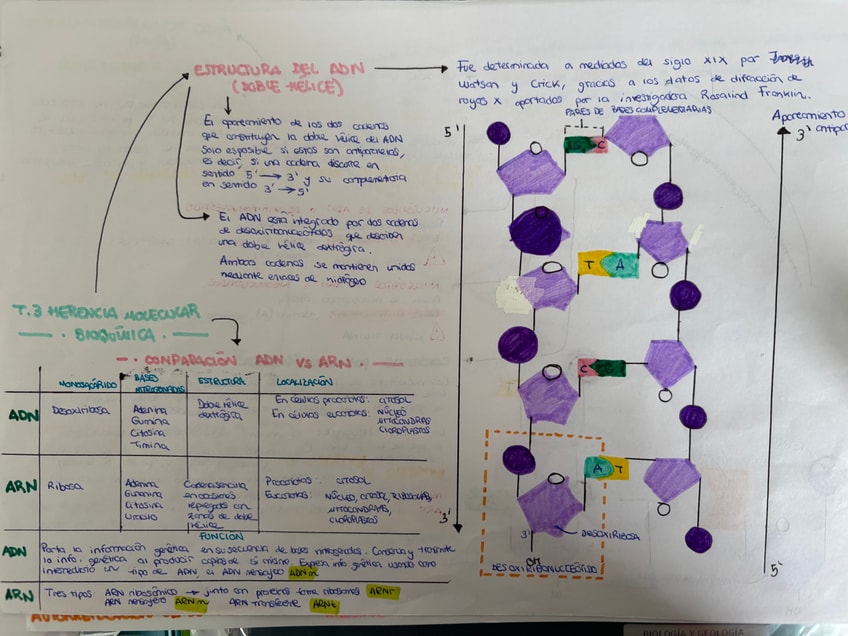 ESTRUCTURA DEL ADN
(DOBLE HÉLICE)
Fue determinada a mediados del siglo XIX por
Watson y Crick, gracias a los datos de difracción de
rayos X aportados por la investigadora Rosalind Franklin.
El apareamiento de las dos cadenas
que constituyen la doble hélice del ADN
solo es posible si estas son antiparalelas,
es decir, si una cadena discurre en
sentido 5' → 3' y su complementaria
en sentido 3' → 5'
El ADN está integrado por dos cadenas
de desoxirribonucleótidos que describen
una doble hélice dextrógira.
Ambas cadenas se mantienen unidas
mediante enlaces de hidrógeno
PARES DE BASES COMPLEMENTARIAS
Apareamiento
5'
3'
C
T A
C
A T
3'
3'
OH
DESOXIRIBOSA
DESOXIRIBONUCLEÓTIDO
5'
T.3 HERENCIA MOLECULAR
BIOQUÍMICA
COMPARACIÓN ADN VS ARN
MONOSACÁRIDO
BASES
NITROGENADAS
ESTRUCTURA
LOCALIZACIÓN
ADN
Desoxiribosa
Adenina
Guanina
Citosina
Timina
Doble hélice
dextrógira
En células procariotas: CITOSOL
En células eucariotas: NÚCLEO
MITOCONDRIAS
CLOROPLASTOS
ARN
Ribosa
Adenina
Guanina
Citosina
Uracilo
Cadena sencilla
en ocasiones
replegada con
zonas de doble
hélice
Procariotas: CITOSOL
Eucariotas: NÚCLEO, CITOSOL, RIBOSOMAS,
MITOCONDRIAS,
CLOROPLASTOS
FUNCIÓN
ADN
Porta la información genética en su secuencia de bases nitrogenadas. Conserva y transmite
la info. genética al producir copias de sí mismo. Expresa info genética usando como
intermediario un tipo de ADN, el ADN mensajero ADNm
ARN
Tres tipos: ARN ribosómico → junto con proteínas forma ribosomas ARNr
ARN mensajero ARNm ARN transferente ARNt
BIOLOGÍA Y GEOLOGÍA